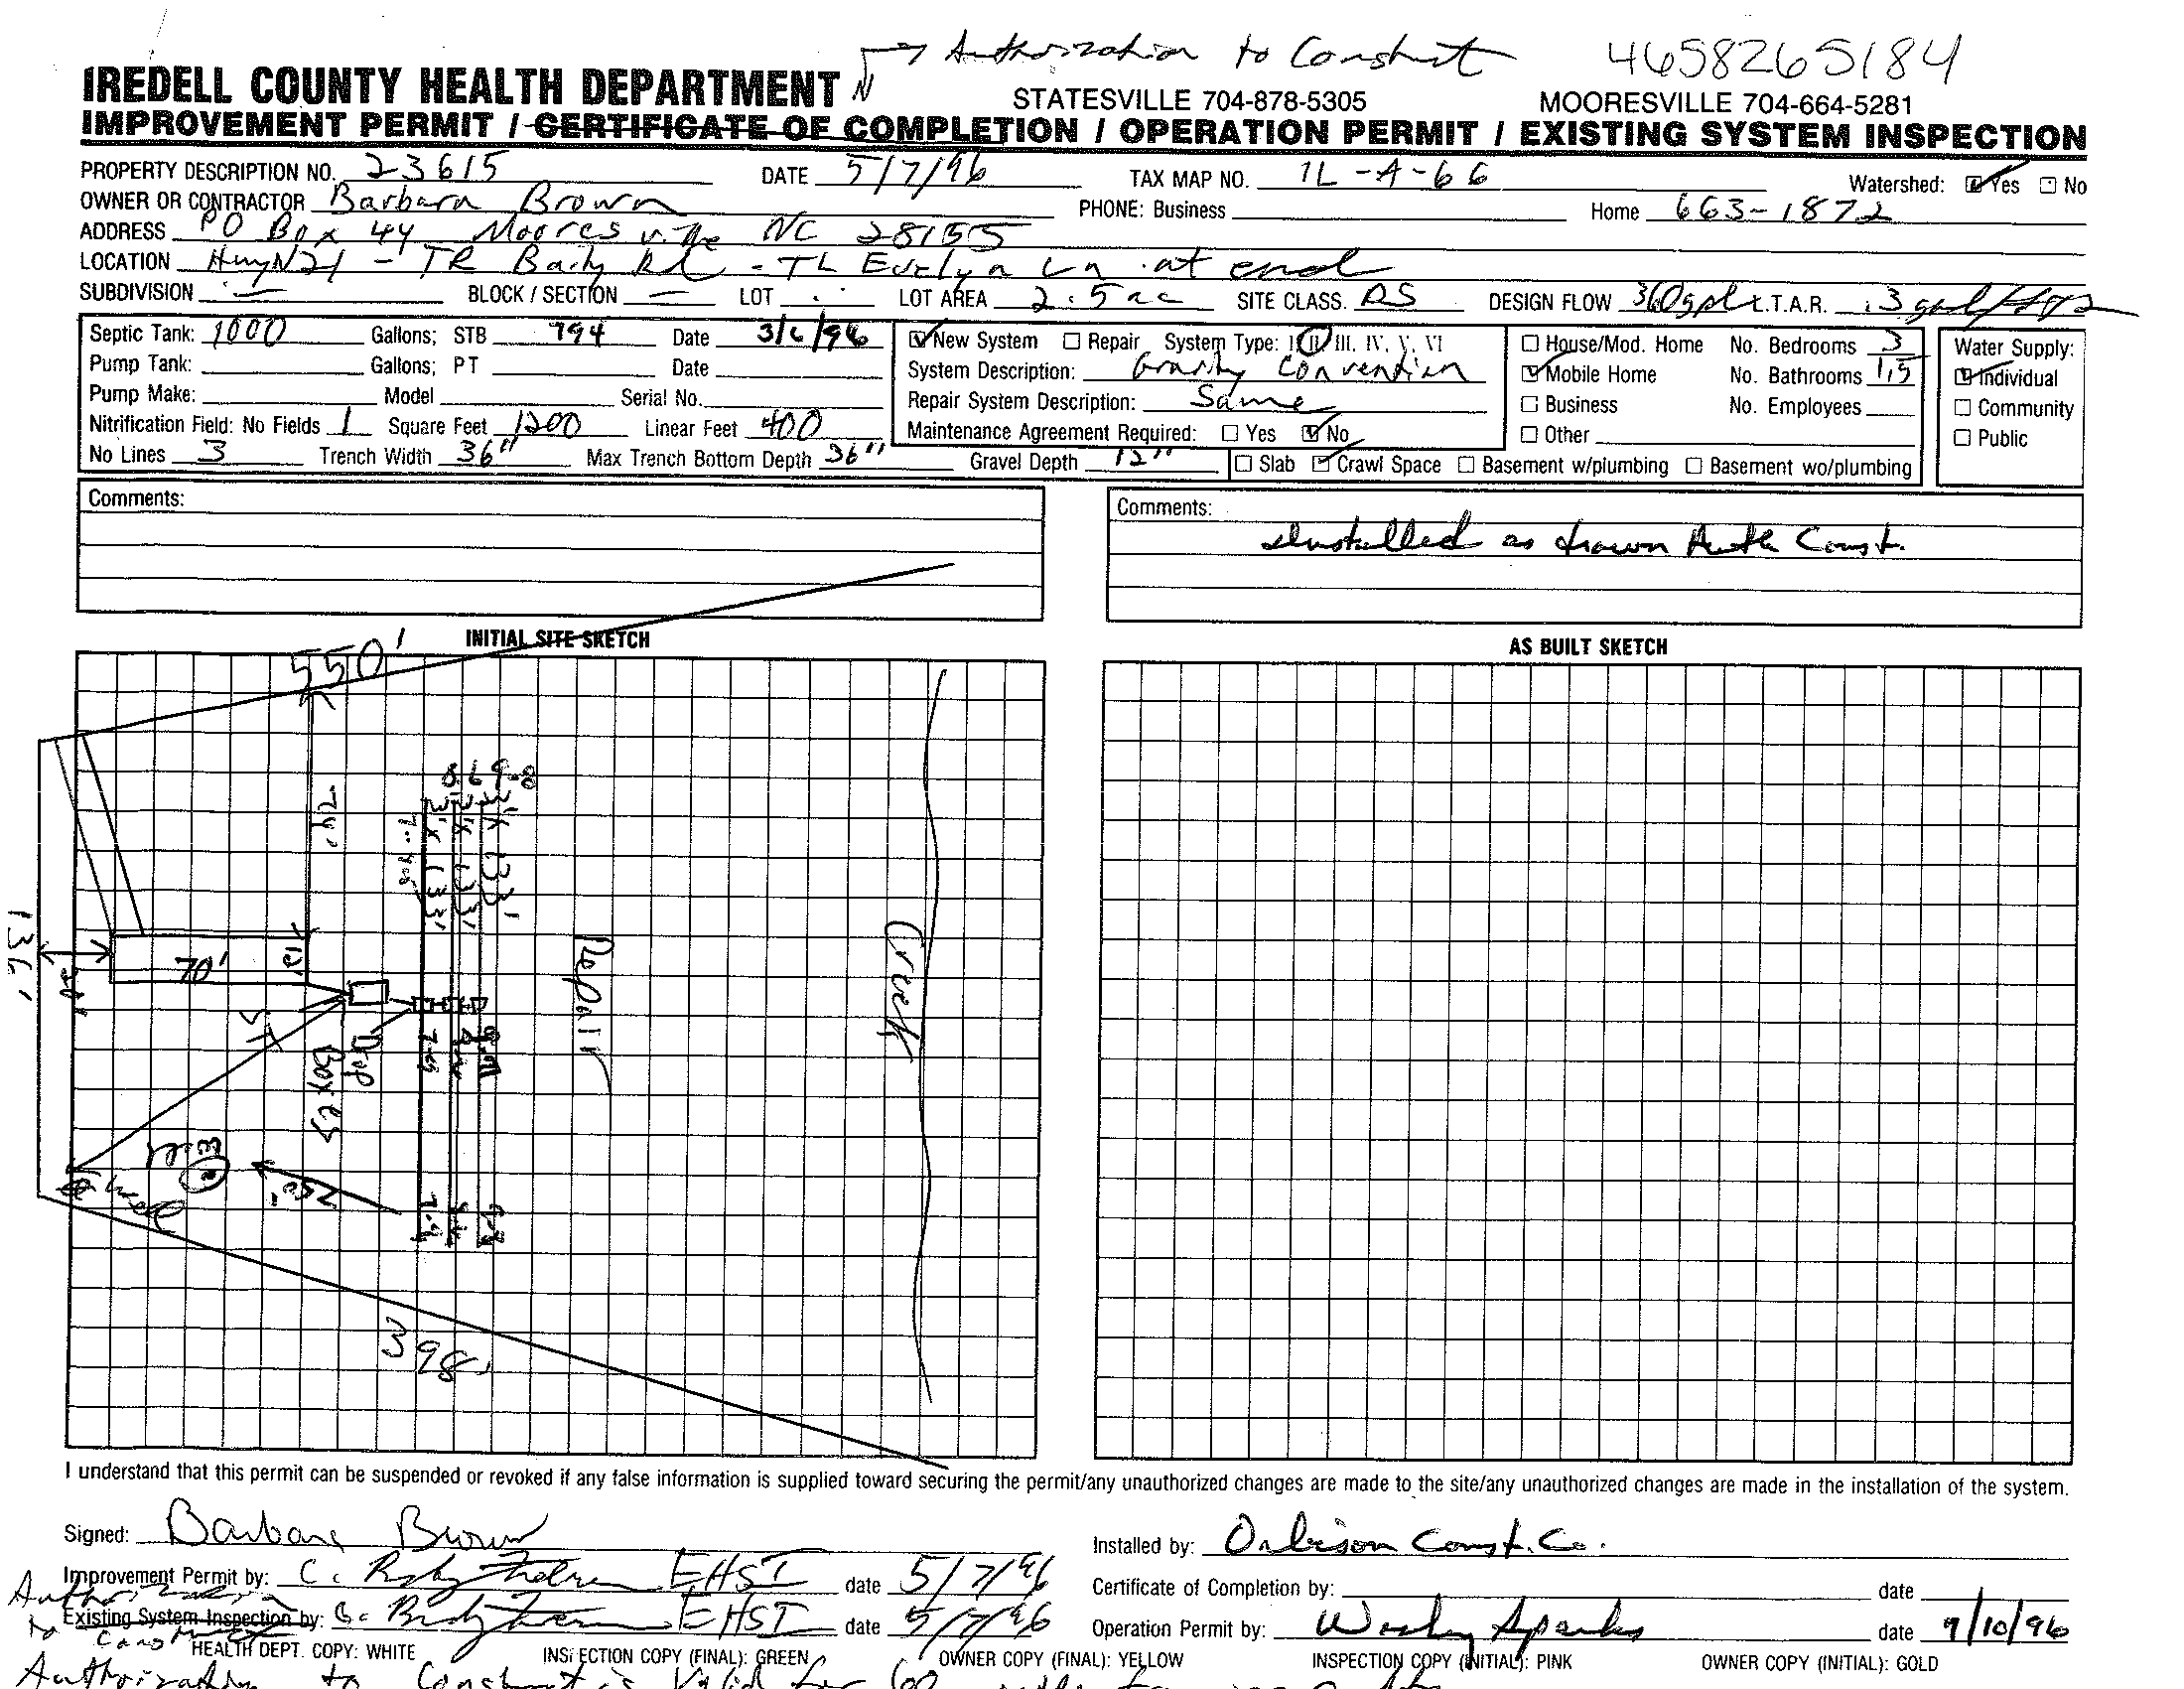 → Authorization to Construct 4658265184
IREDELL COUNTY HEALTH DEPARTMENT N STATESVILLE 704-878-5305 MOORESVILLE 704-664-5281
IMPROVEMENT PERMIT / CERTIFICATE OF COMPLETION / OPERATION PERMIT / EXISTING SYSTEM INSPECTION
PROPERTY DESCRIPTION NO. 23615 DATE 5/7/96 TAX MAP NO. 1L-A-66 Watershed: Yes No
OWNER OR CONTRACTOR Barbara Brown PHONE: Business Home 663-1872
ADDRESS PO Box 44 Mooresville NC 28155
LOCATION Hwy N21 - TR Baily Rd - TL Evelyn Ln at end
SUBDIVISION — BLOCK / SECTION — LOT . LOT AREA 2.5 ac SITE CLASS. PS DESIGN FLOW 360gpd L.T.A.R. .3 gpd/ft2
Septic Tank: 1000 Gallons; STB 794 Date 3/6/96 New System Repair System Type: I II, III, IV, V, VI House/Mod. Home No. Bedrooms 3 Water Supply:
Pump Tank: Gallons; PT Date System Description: Gravity Convention Mobile Home No. Bathrooms 1.5 Individual
Pump Make: Model Serial No. Repair System Description: Same Business No. Employees Community
Nitrification Field: No Fields 1 Square Feet 1200 Linear Feet 400 Maintenance Agreement Required: Yes No Other Public
No Lines 3 Trench Width 36" Max Trench Bottom Depth 36" Gravel Depth 12" Slab Crawl Space Basement w/plumbing Basement wo/plumbing
Comments: Comments:
Installed as drawn Auth Const.
INITIAL SITE SKETCH AS BUILT SKETCH
550'
3'x133'
3'x133'
3'x133'
136'
70'
Repair
Creek
Drop
Boxes
Well
398'
I understand that this permit can be suspended or revoked if any false information is supplied toward securing the permit/any unauthorized changes are made to the site/any unauthorized changes are made in the installation of the system.
Signed: Barbara Brown Installed by: Orbison Const. Co.
Improvement Permit by: C. EHSI date 5/7/96 Certificate of Completion by: date
Authorization to Construct
Existing System Inspection by: EHSI date 5/7/96 Operation Permit by: Wesley Sparks date 9/10/96
HEALTH DEPT. COPY: WHITE INSPECTION COPY (FINAL): GREEN OWNER COPY (FINAL): YELLOW INSPECTION COPY (INITIAL): PINK OWNER COPY (INITIAL): GOLD
Authorization to Construct is Valid for 60